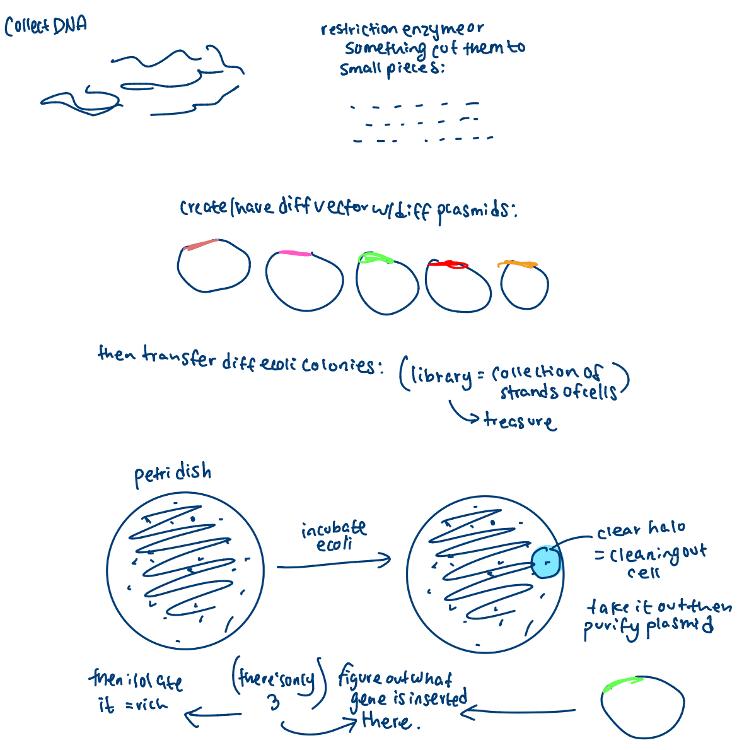 Collect DNA
restriction enzyme or
something cut them to
small pieces:
create/have diff vector w/diff plasmids:
then transfer diff ecoli colonies:
(library = collection of
strands of cells)
treasure
petri dish
incubate
ecoli
clear halo
= cleaning out
cell
take it out then
purify plasmid
figure out what
gene is inserted
there.
(there's only
3)
then isolate
it = rich